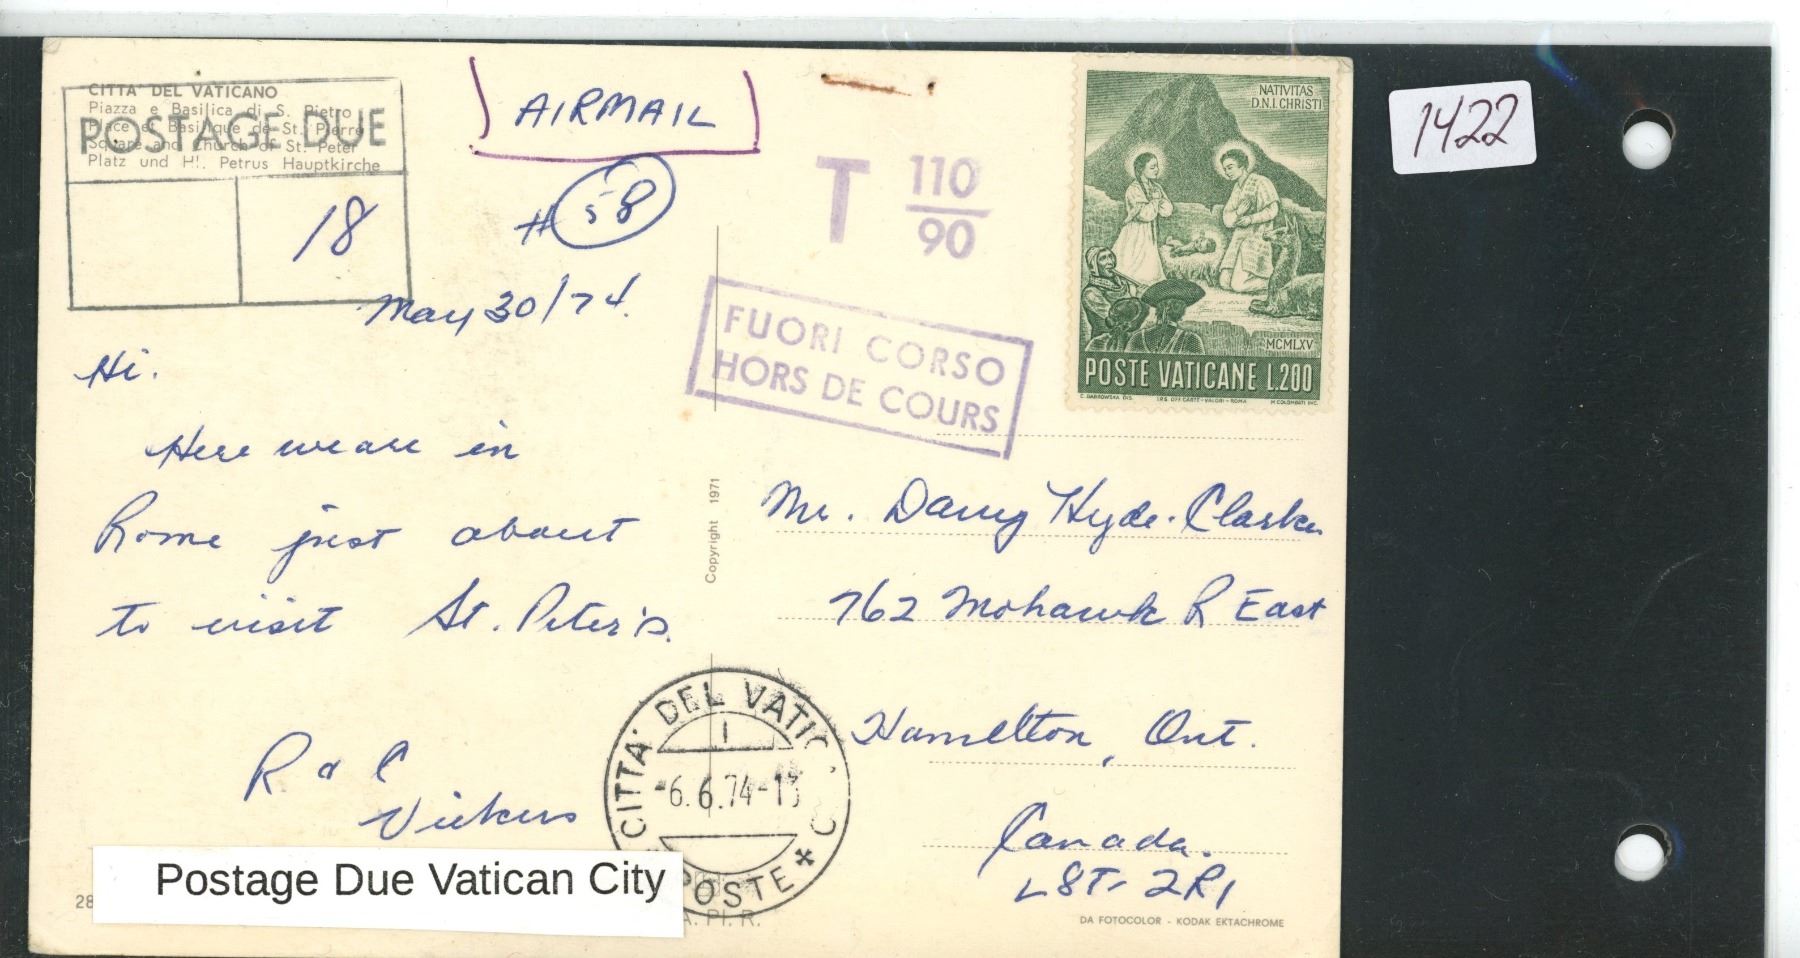 CITTA' DEL VATICANO
Piazza e Basilica di S. Pietro
Place et Basilique de St. Pierre
Square and Church of St. Peter
Platz und Hl. Petrus Hauptkirche
POSTAGE DUE
18
AIRMAIL
# 58
T 110
90
FUORI CORSO
HORS DE COURS
NATIVITAS
D.N.I. CHRISTI
MCMLXV
POSTE VATICANE L.200
C. DABROWSKA DIS. IPS. OFF. CARTE-VALORI-ROMA M. COLOMBATI INC.
1422
May 30/74.
Hi.
Here we are in
Rome just about
to visit St. Peter's.
R & C
Vickers
Copyright 1971
Mr. Danny Hyde-Clarke
762 Mohawk R East
Hamilton, Ont.
Canada.
L8T-2R1
CITTA' DEL VATIC
1
-6.6.74-13
POSTE
Postage Due Vatican City
28
A. PI. R.
DA FOTOCOLOR - KODAK EKTACHROME